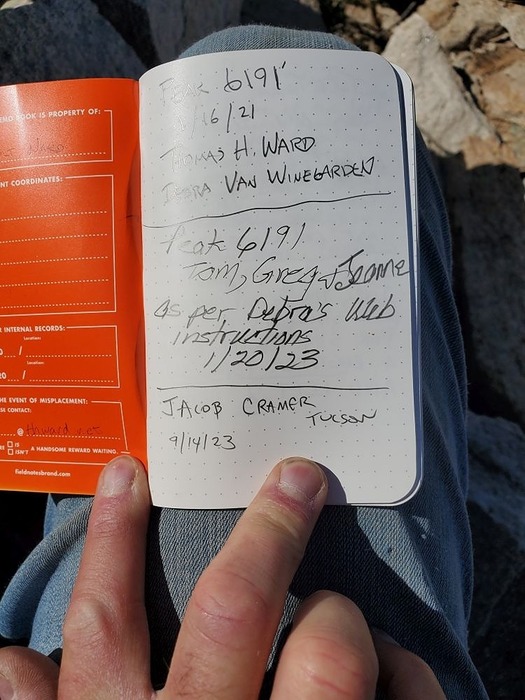 MEMO BOOK IS PROPERTY OF:
WARD
NT COORDINATES:
R INTERNAL RECORDS:
Location:
0 /
Location:
20 /
THE EVENT OF MISPLACEMENT:
SE CONTACT:
@
IS
ISN'T A HANDSOME REWARD WAITING.
fieldnotesbrand.com
PEAK 6191'
/16/21
THOMAS H. WARD
DEBRA VAN WINEGARDEN
Peak 6191
Tom, Greg + Joanne
as per Debra's Web
instructions
1/20/23
JACOB CRAMER
TUCSON
9/14/23